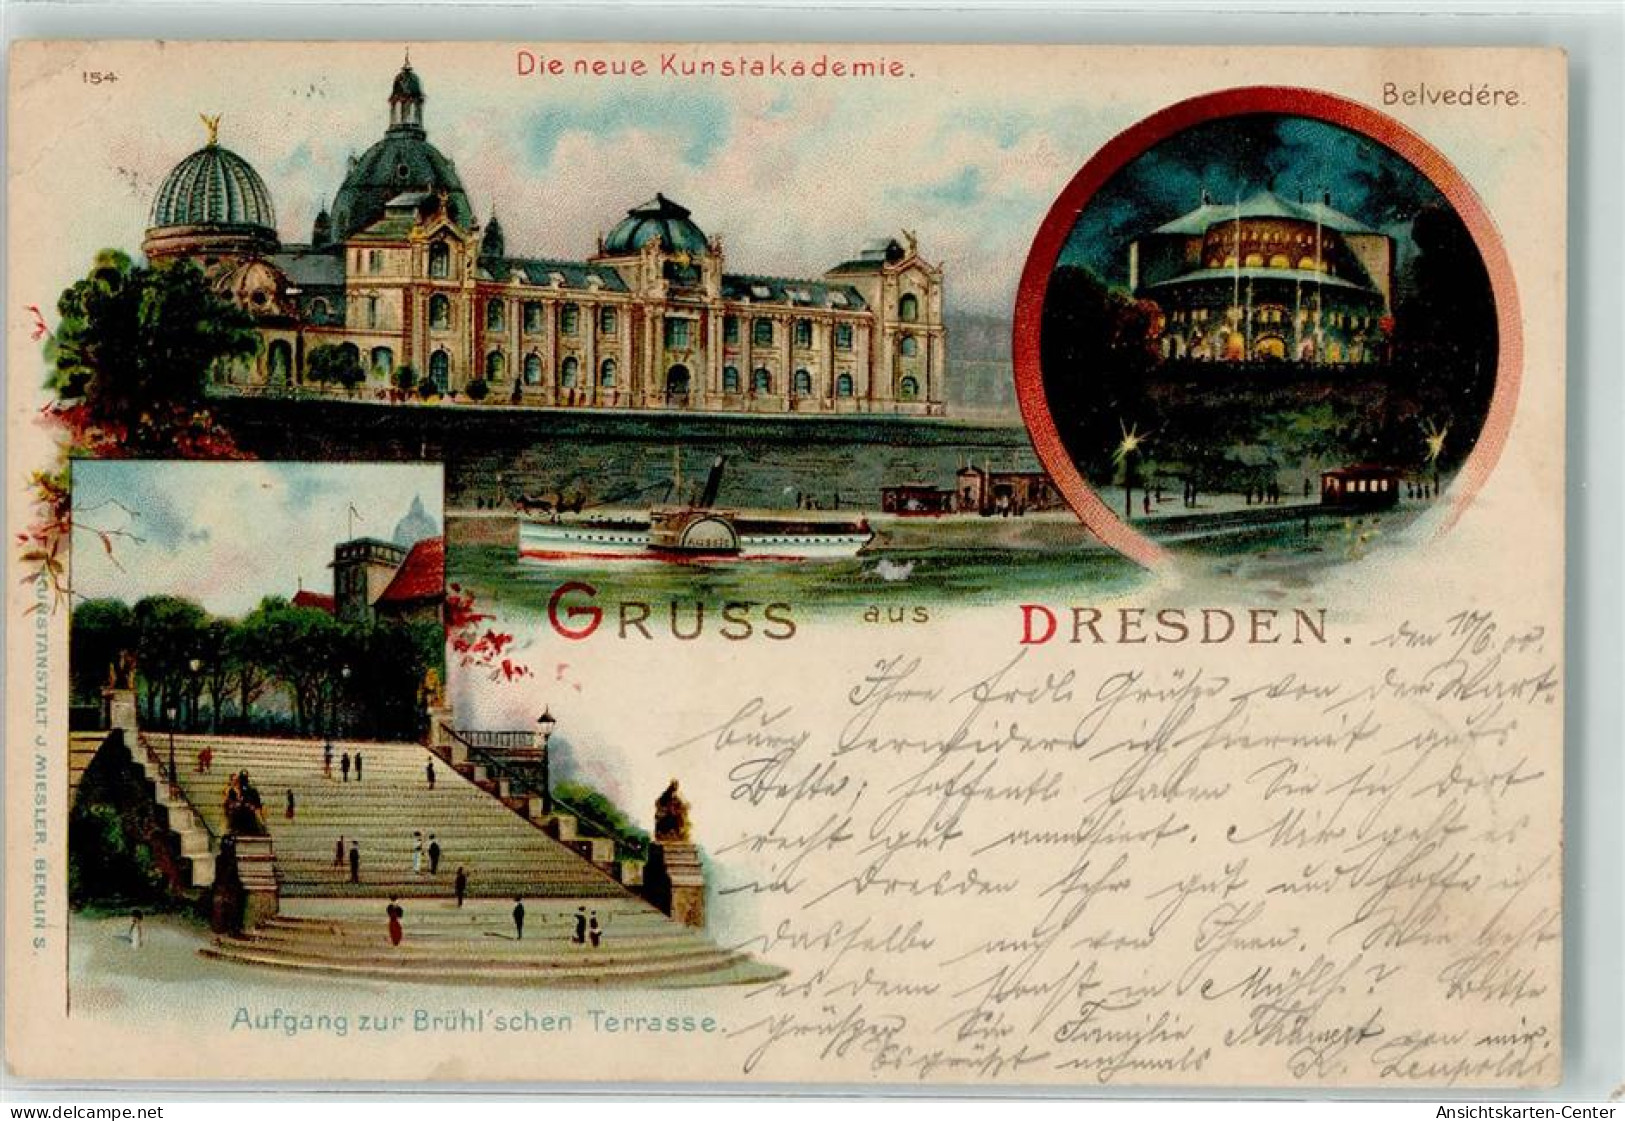 154
Die neue Kunstakademie.
Belvedére.
AUSSIG
GRUSS aus DRESDEN.
den 10/6.00.
Ihre frdl. Grüße von der Wart-
burg erwidere ich hiermit aufs
Beste; hoffentl. haben Sie sich dort
recht gut amüsiert. Mir geht es
in Dresden sehr gut und hoffe ich
dasselbe auch von Ihnen. Wie geht
es denn sonst in Mühlh.? Bitte
grüßen Sie Familie von mir.
Es grüßt nochmals K. Leupold
Aufgang zur Brühl'schen Terrasse.
KUNSTANSTALT J. MIESLER, BERLIN S.
www.delcampe.net
Ansichtskarten-Center